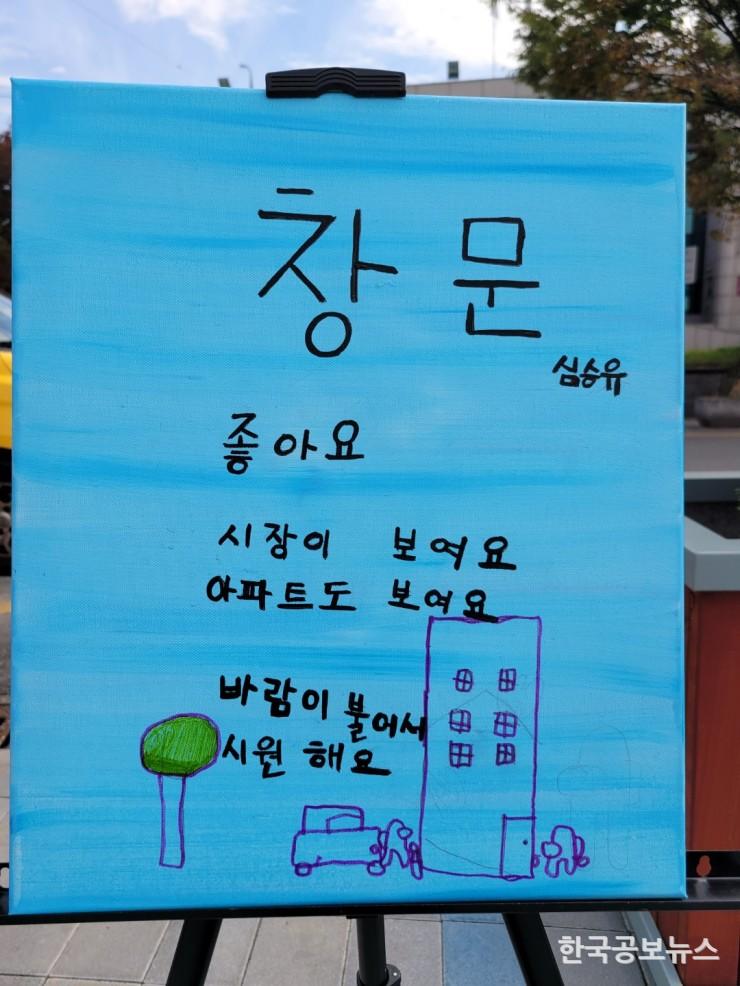 창문
심승유
좋아요
시장이 보여요
아파트도 보여요
바람이 불어서
시원 해요
한국공보뉴스